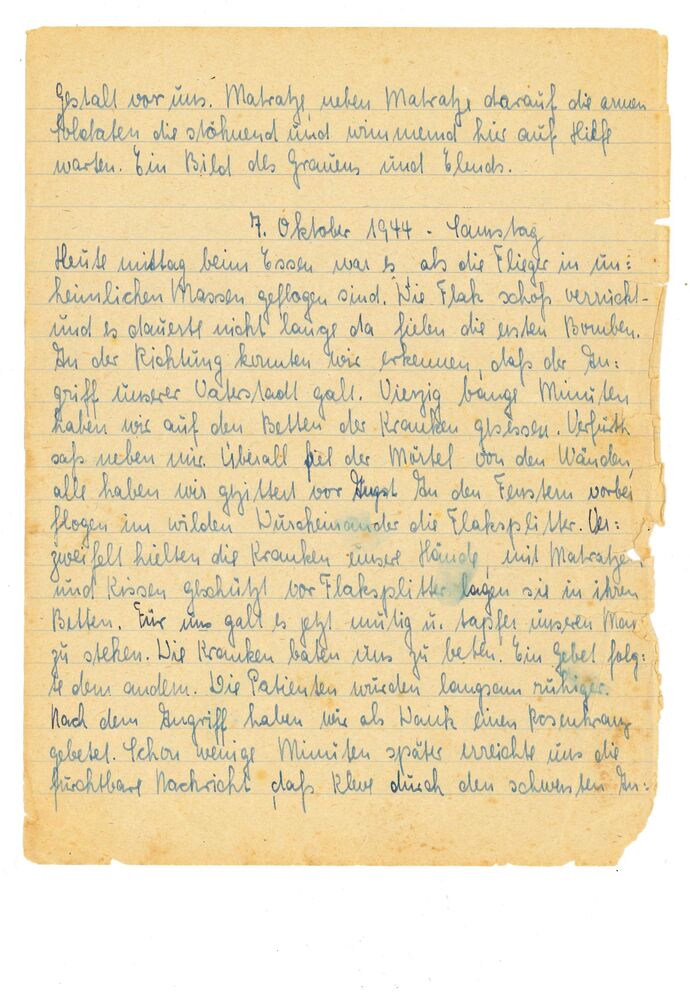 Gestalt vor uns. Matratze neben Matratze darauf die armen
Soldaten die stöhnend und wimmernd hier auf Hilfe
warten. Ein Bild des Grauens und Elends.
7. Oktober 1944 - Samstag
Heute mittag beim Essen war es als die Flieger in un:
heimlichen Massen geflogen sind. Die Flak schoß verrückt-
und es dauerte nicht lange da fielen die ersten Bomben.
In der Richtung konnten wir erkennen, daß der An:
griff unserer Vaterstadt galt. Vierzig bange Minuten
haben wir auf den Betten der Kranken gesessen.
saß neben mir. Überall fiel der Mörtel von den Wänden,
alle haben wir gezittert vor Angst. An den Fenstern vorbei
flogen im wilden Durcheinander die Flaksplitter. Ver:
zweifelt hielten die Kranken unsere Hände, mit Matratzen
und Kissen geschützt vor Flaksplitter lagen sie in ihren
Betten. Für uns galt es jetzt mutig u. tapfer unseren Man
zu stehen. Die Kranken baten uns zu beten. Ein Gebet folg:
te dem andern. Die Patienten wurden langsam ruhiger.
Nach dem Angriff haben wir als Dank einen Rosenkranz
gebetet. Schon wenige Minuten später erreichte uns die
furchtbare Nachricht, daß Kleve durch den schwersten An: